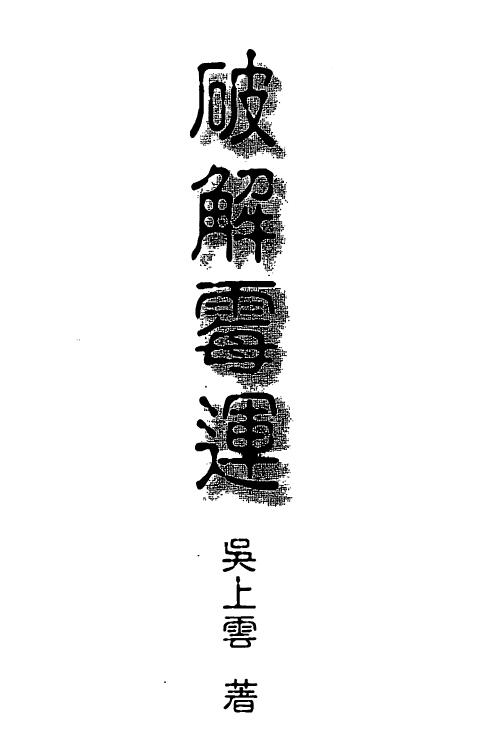 破解霉運
吳上雲 著